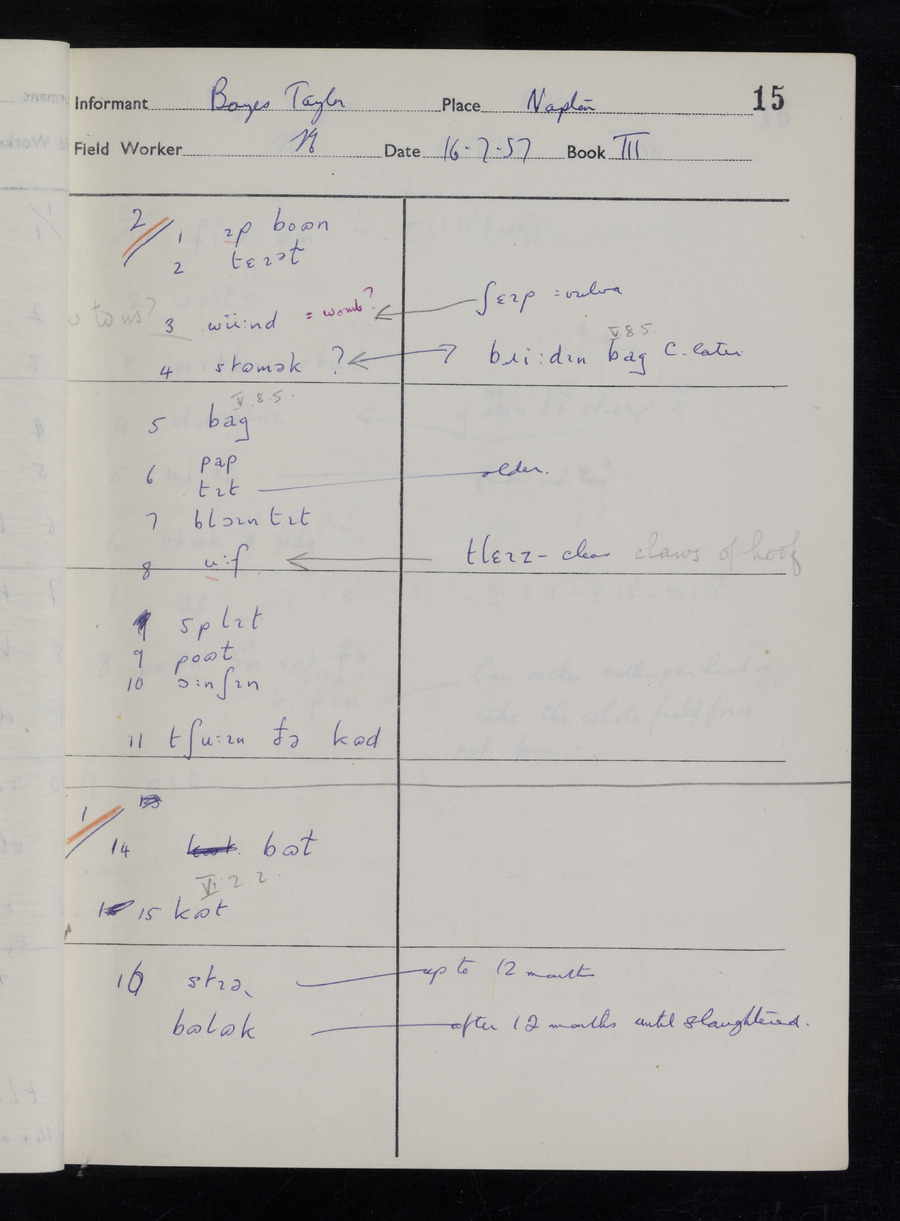 Informant Bayes Taylor Place Napton 15
Field Worker Date 16-7-57 Book III
2// 1 ɪp boən
2 tɛɪət
3 wɪi:nd = womb? ʃɛɪp = vulva
4 stəmək ? V 8 5. bɹi:dɪn bag C. later
5 bag V. 8. 5.
6 pap
tɪt older.
7 blɔɪn tɪt
8 u:f tlɛɪz - claws of hoof
9 splɪt
9 poət
10 ɔ:nʃɪn
11 tʃu:ɪn ðə kəd
1//
14 bət
VI. 2 2
15 kət
16 stɪə up to 12 months
bələk after 12 months until slaughtered.